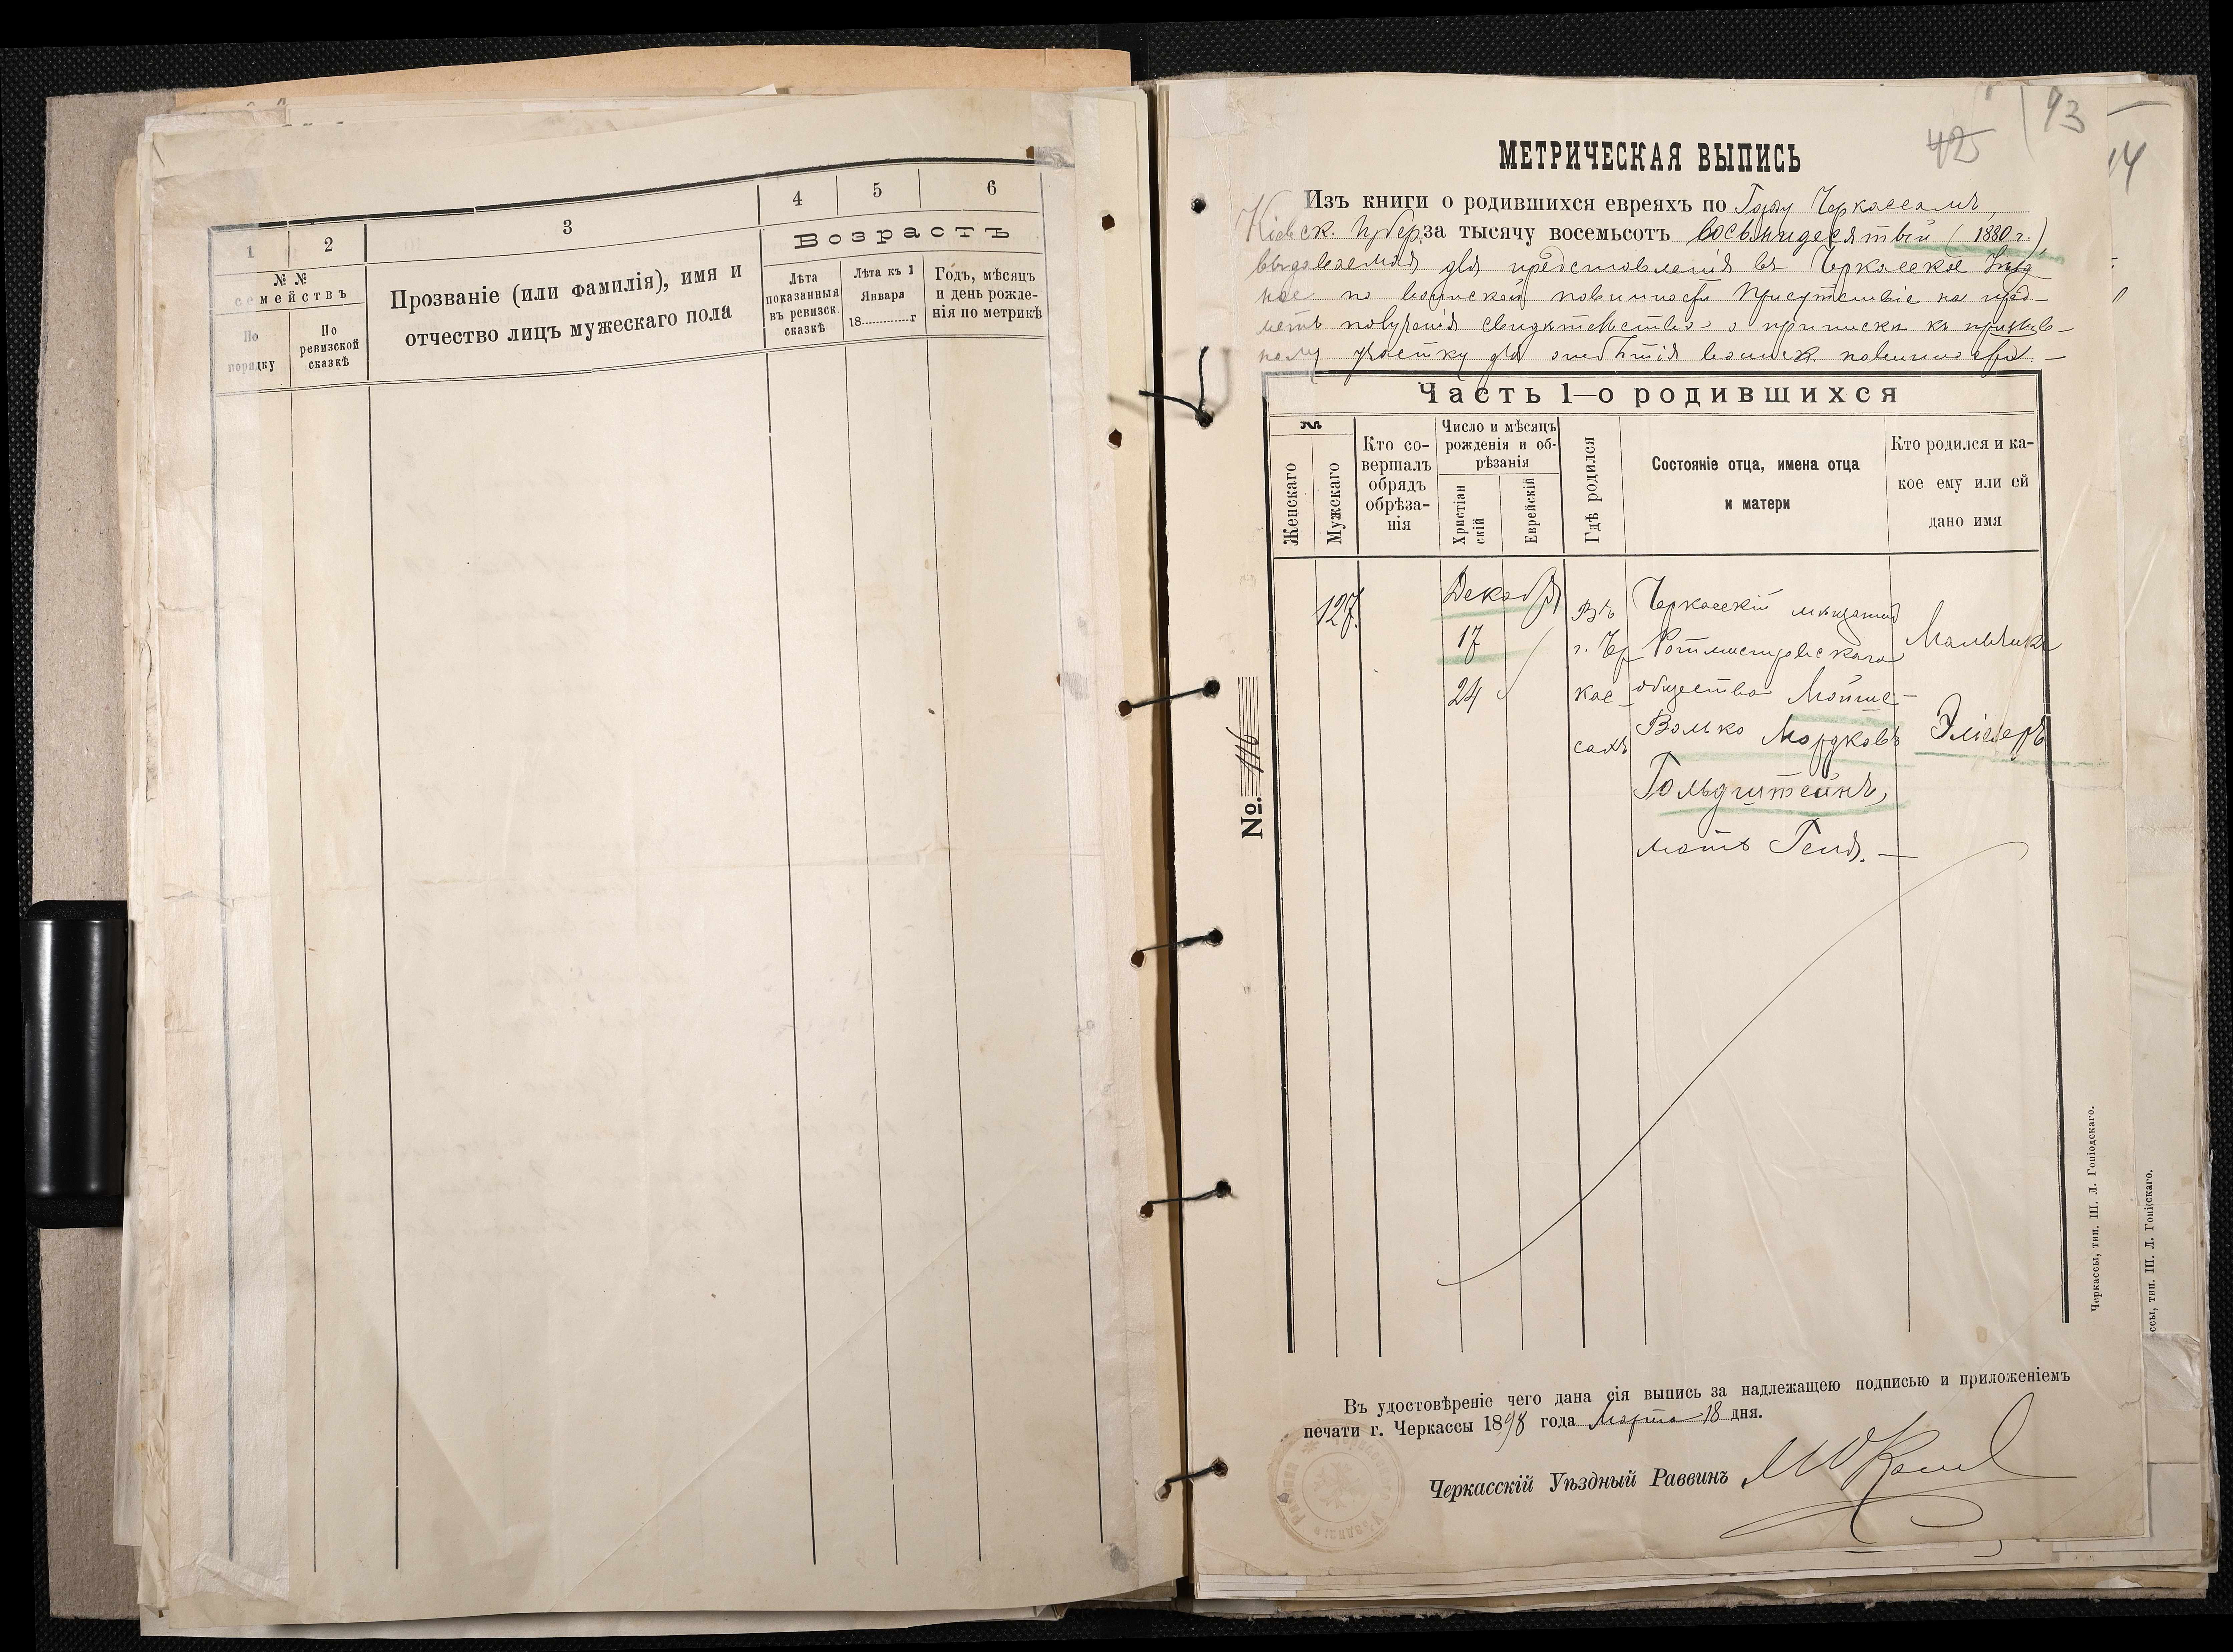 1
2
3
4
5
6
№ №
семействъ
По
порядку
По
ревизской
сказкѣ
Прозваніе (или фамилія), имя и
отчество лицъ мужескаго пола
Возрастъ
Лѣта
показанныя
въ ревизск.
сказкѣ
Лѣта къ 1
Января
18 г
Годъ, мѣсяцъ
и день рожде-
нія по метрикѣ
42
93
14
МЕТРИЧЕСКАЯ ВЫПИСЬ
Изъ книги о родившихся евреяхъ по Городу Черкассамъ,
Кіевск. Губер. за тысячу восемьсотъ восьмидесятый (1880 г.),
выдаваемая для представленія въ Черкасское Уѣзд-
ное по воинской повинности Присутствіе на пред-
метъ полученія свидѣтельства о припискѣ къ призыв-
ному участку для отбытія воинск. повинности. —
Часть 1—о родившихся
№
Женскаго
Мужскаго
Кто со-
вершалъ
обрядъ
обрѣза-
нія
Число и мѣсяцъ
рожденія и об-
рѣзанія
Христіан
скій
Еврейскій
Гдѣ родился
Состояніе отца, имена отца
и матери
Кто родился и ка-
кое ему или ей
дано имя
127.
Декабря
17
24
Въ
г. Чер
кас-
сахъ
Черкасскій мѣщанинъ
Ротмистровскаго
общества Мойше-
Волько Мордковъ
Гольдштейнъ,
мать Геня. —
Мальчикъ
Эліезеръ
№. 116
Черкассы, тип. Ш. Л. Гоніодскаго.
ссы, тип. Ш. Л. Гоніскаго.
Въ удостовѣреніе чего дана сія выпись за надлежащею подписью и приложеніемъ
печати г. Черкассы 1898 года Марта 18 дня.
Черкасскій Уѣздный Раввинъ